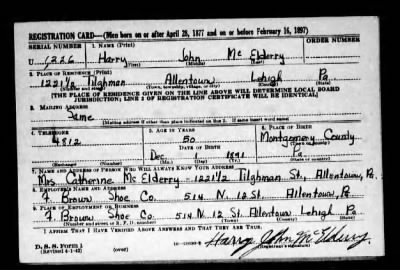 REGISTRATION CARD—(Men born on or after April 28, 1877 and on or before February 16, 1897)
SERIAL NUMBER 1. NAME (Print) ORDER NUMBER
U 1226 Harry John McElderry
(First) (Middle) (Last)
2. PLACE OF RESIDENCE (Print)
1221½ Tilghman Allentown Lehigh Pa.
(Number and street) (Town, township, village, or city) (County) (State)
[THE PLACE OF RESIDENCE GIVEN ON THE LINE ABOVE WILL DETERMINE LOCAL BOARD
JURISDICTION; LINE 2 OF REGISTRATION CERTIFICATE WILL BE IDENTICAL]
3. MAILING ADDRESS
Same
[Mailing address if other than place indicated on line 2. If same insert word same]
4. TELEPHONE 5. AGE IN YEARS 6. PLACE OF BIRTH
4812 50 Montgomery County
DATE OF BIRTH (Town or county)
Dec 1 1891 Pa.
(Exchange) (Number) (Mo.) (Day) (Yr.) (State or country)
7. NAME AND ADDRESS OF PERSON WHO WILL ALWAYS KNOW YOUR ADDRESS
Mrs Catherine McElderry - 1221½ Tilghman St., Allentown, Pa.
8. EMPLOYER'S NAME AND ADDRESS
F. Brown Shoe Co. 514 N. 12 St. Allentown, Pa.
9. PLACE OF EMPLOYMENT OR BUSINESS
F. Brown Shoe Co. 514 N. 12 St. Allentown Lehigh Pa.
(Number and street or R. F. D. number) (Town) (County) (State)
I AFFIRM THAT I HAVE VERIFIED ABOVE ANSWERS AND THAT THEY ARE TRUE.
D. S. S. Form 1
(Revised 4-1-42) (over) Harry John McElderry
(Registrant's signature)